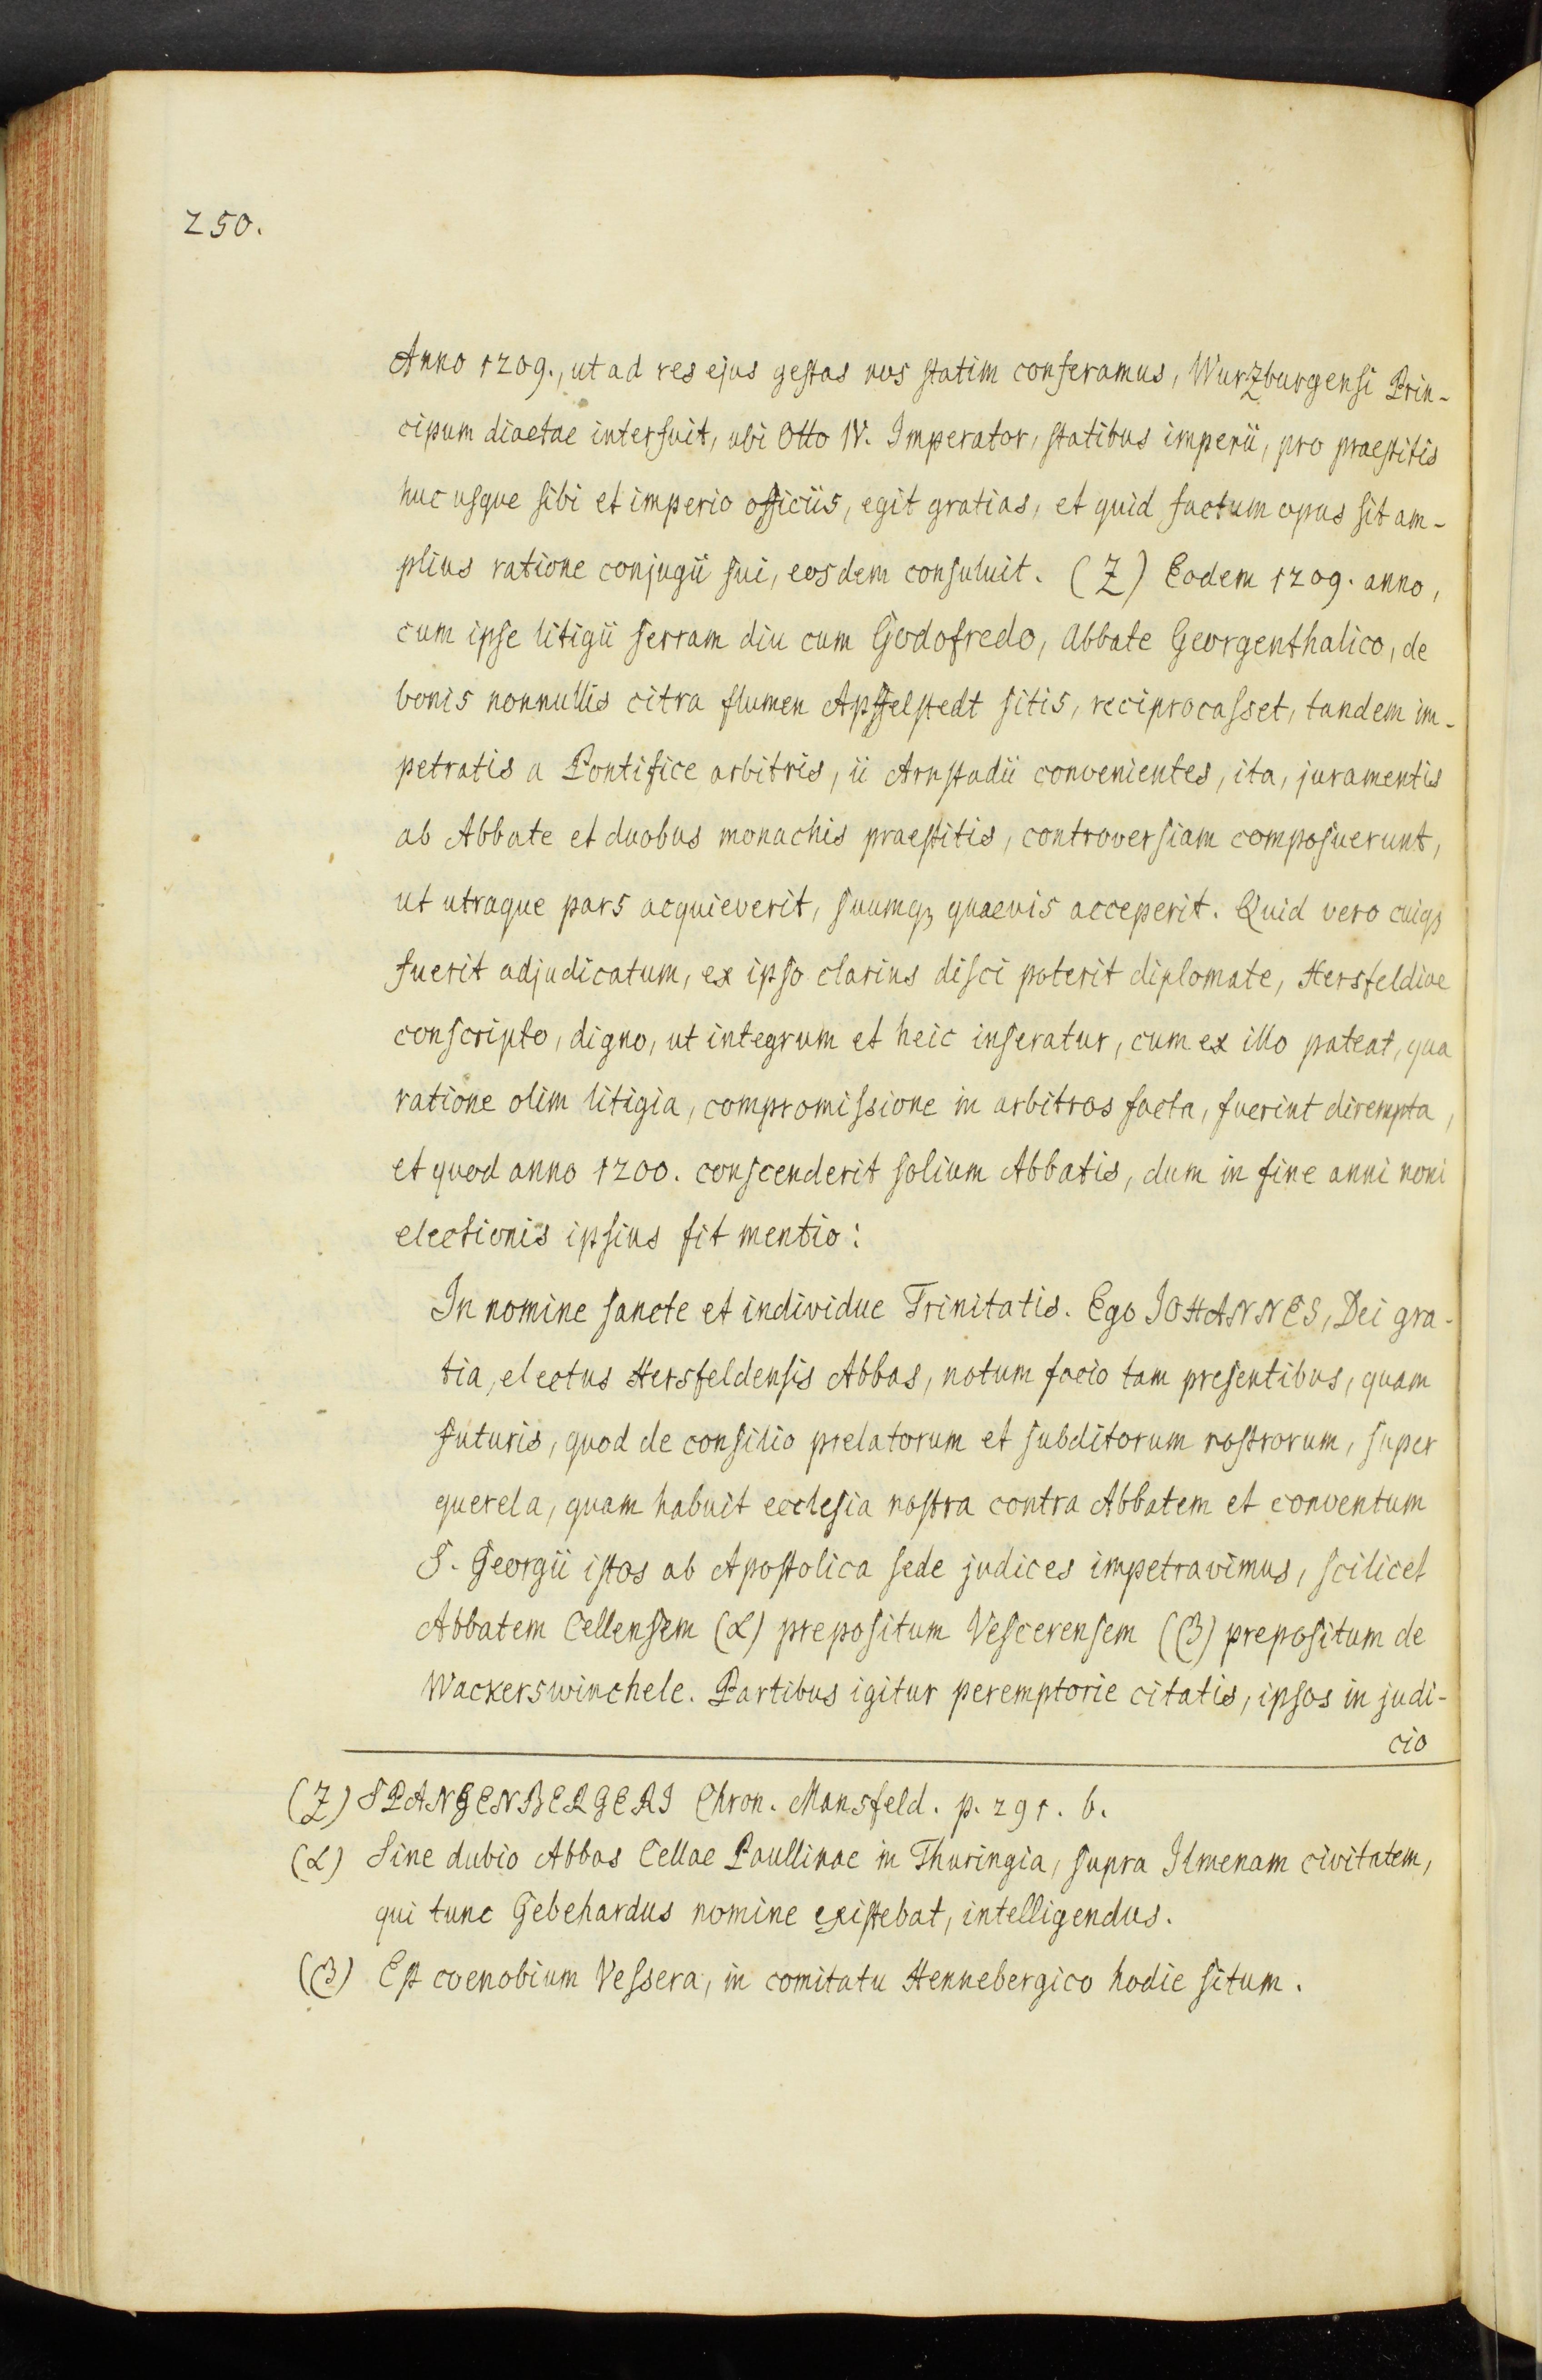 250.
Anno 1209., ut ad res ejus gestas nos statim conferamus, Wurzburgensi Prin-
cipum diaetae interfuit, ubi Otto IV. Imperator, statibus imperii, pro praestitis
huc usque sibi et imperio officiis, egit gratias, et quid factum opus sit am-
plius ratione conjugii sui, eosdem consuluit. (Z) Eodem 1209. anno,
cum ipse litigii serram diu cum Godofredo, Abbate Georgenthalico, de
bonis nonnullis citra flumen Apffelstedt sitis, reciprocasset, tandem im-
petratis a Pontifice arbitris, ii Arnstadii convenientes, ita, juramentis
ab Abbate et duobus monachis praestitis, controversiam composuerunt,
ut utraque pars acquieverit, suumqꝫ quaevis acceperit. Quid vero cuiqꝫ
fuerit adjudicatum, ex ipso clarius disci poterit diplomate, Hersfeldiae
conscripto, digno, ut integrum et heic inseratur, cum ex illo pateat, qua
ratione olim litigia, compromissione in arbitros facta, fuerint dirempta,
et quod anno 1200. conscenderit solium Abbatis, dum in fine anni noni
electionis ipsius fit mentio:
In nomine sancte et individue Trinitatis. Ego JOHANNES, Dei gra-
tia, electus Hersfeldensis Abbas, notum facio tam presentibus, quam
futuris, quod de consilio prelatorum et subditorum nostrorum, super
querela, quam habuit ecclesia nostra contra Abbatem et conventum
S. Georgii istos ab Apostolica sede judices impetravimus, scilicet
Abbatem Cellensem (α) prepositum Vescerensem (β) prepositum de
Wackerswinchele. Partibus igitur peremptorie citatis, ipsos in judi-
cio
(Z) SPANGENBERGERI Chron. Mansfeld. p. 291. b.
(α) Sine dubio Abbas Cellae Paullinae in Thuringia, supra Ilmenam civitatem,
qui tunc Gebehardus nomine existebat, intelligendus.
(β) Est coenobium Vessera, in comitatu Hennebergico hodie situm.